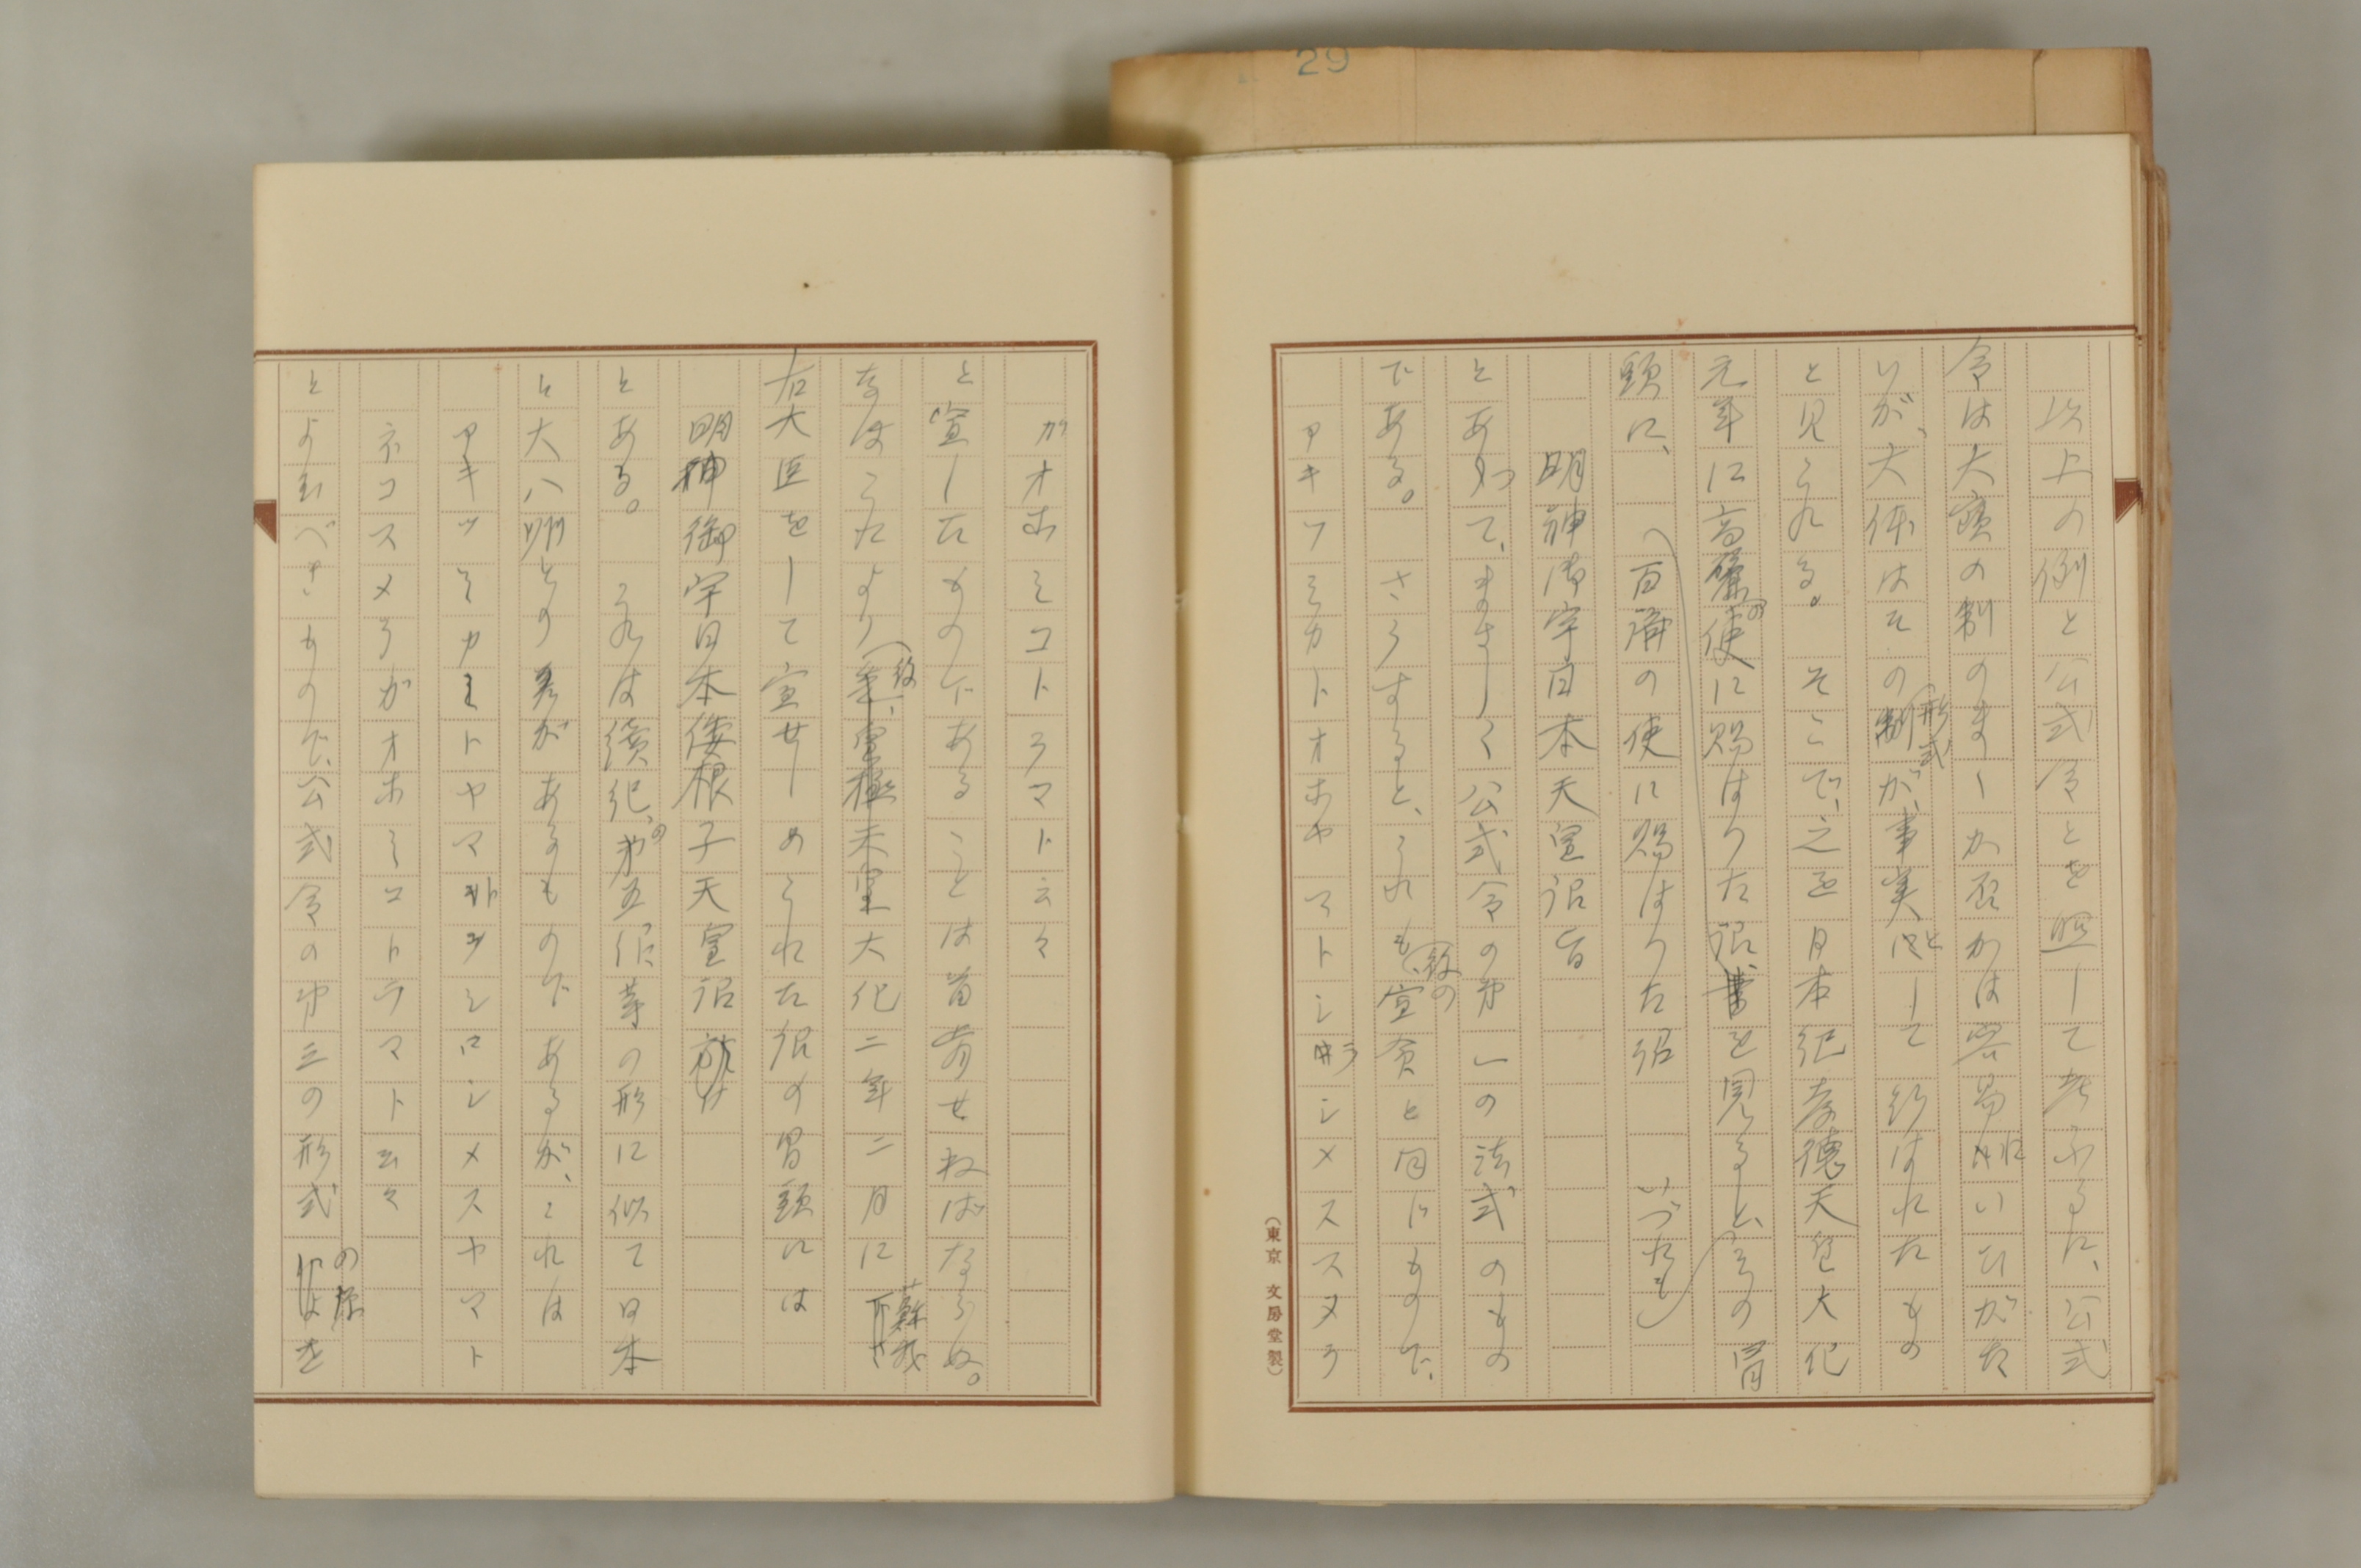 29
以上の例と公式令とを照して考ふるに、公式
令は大寳の制のまゝか否かは容易にいひがた
いが、大体はその形式が、事実として行はれたもの
と見られる。そこで、之を日本紀孝徳天皇大化
元年に高麗の使に賜はつた詔を見ると、その冒
頭に、(百済の使に賜はつた詔 いづれも)
明神御宇日本天皇詔旨
とあつて、まさしく公式令の第一の法式のもの
である。さうすると、これも、後の宣命と同じもので、
アキツミカトオホヤマトシラシメススメラ
(東京 文房堂製)
ガオホミコトラマト云々
と宣したものであることは首肯せねばならぬ。
なほこれより後、大化二年二月に蘇我
右大臣をして宣せしめられた詔の冒頭には
明神御宇日本倭根子天皇詔
とある。これは續紀の第五詔等の形に似て日本
と大八洲との差があるものであるが、これは
アキツミカミトヤマトシロシメスヤマト
ネコスメラガオホミコトラマト云々
とよむべきもので、公式令の第三の形式の様